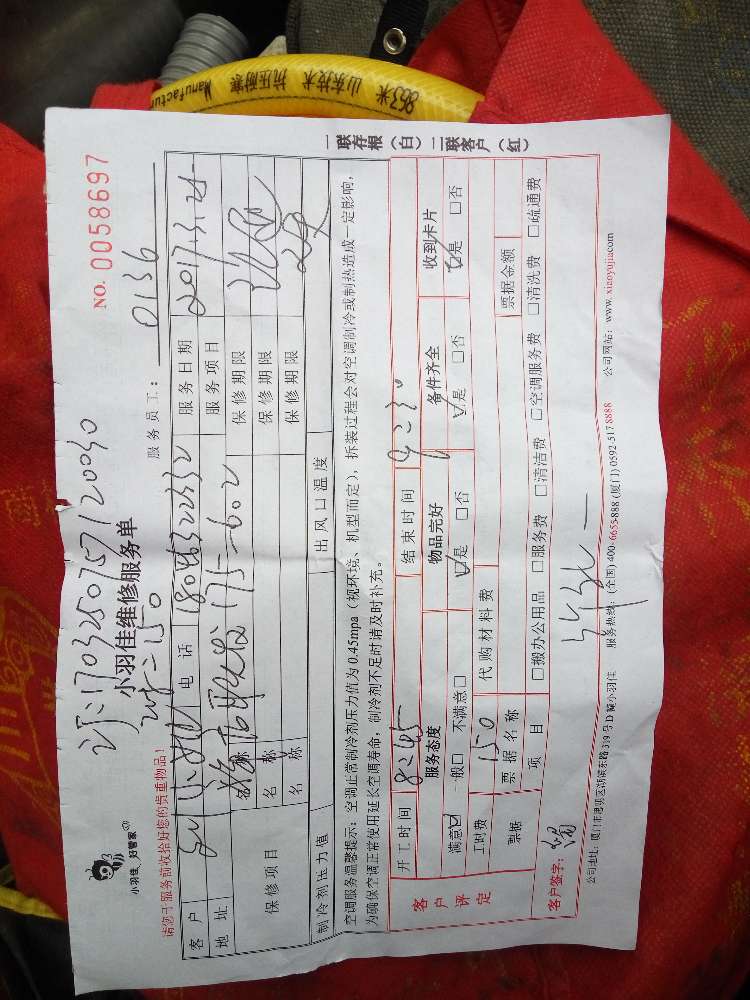 863米 山东技术 抗压耐寒 Manufactur
NO. 0058697
订:170325075720030
小羽佳 好管家
小羽佳维修服务单
服务员工: 0136
请您于服务前收拾好您的贵重物品!
客户 电话 服务日期 2017.3.25
地址 175-602 服务项目
保修项目 名称 保修期限
名称 保修期限
名称 保修期限
制冷剂压力值 出风口温度
空调服务温馨提示:空调正常制冷剂压力值为0.45mpa(视环境、机型而定),拆装过程会对空调制冷或制热造成一定影响,
为确保空调正常使用延长空调寿命,制冷剂不足时请及时补充。
一联存根(白)二联客户(红)
开工时间 8:45 结束时间 9:30
客户评定 服务态度 物品完好 备件齐全 收到卡片
满意☑ 一般□ 不满意□ ☑是 □否 ☑是 □否 ☑是 □否
工时费 150 代购材料费
票据 票据名称 票据金额
项目 □搬办公用品 □服务费 □清洁费 □空调服务费 □清洗费 □疏通费
客户签字:
公司地址:厦门市思明区湖滨东路319号D幢小羽佳 服务热线:(全国)400-6655-888 (厦门)0592-5178888 公司网站:www.xiaoyujia.com